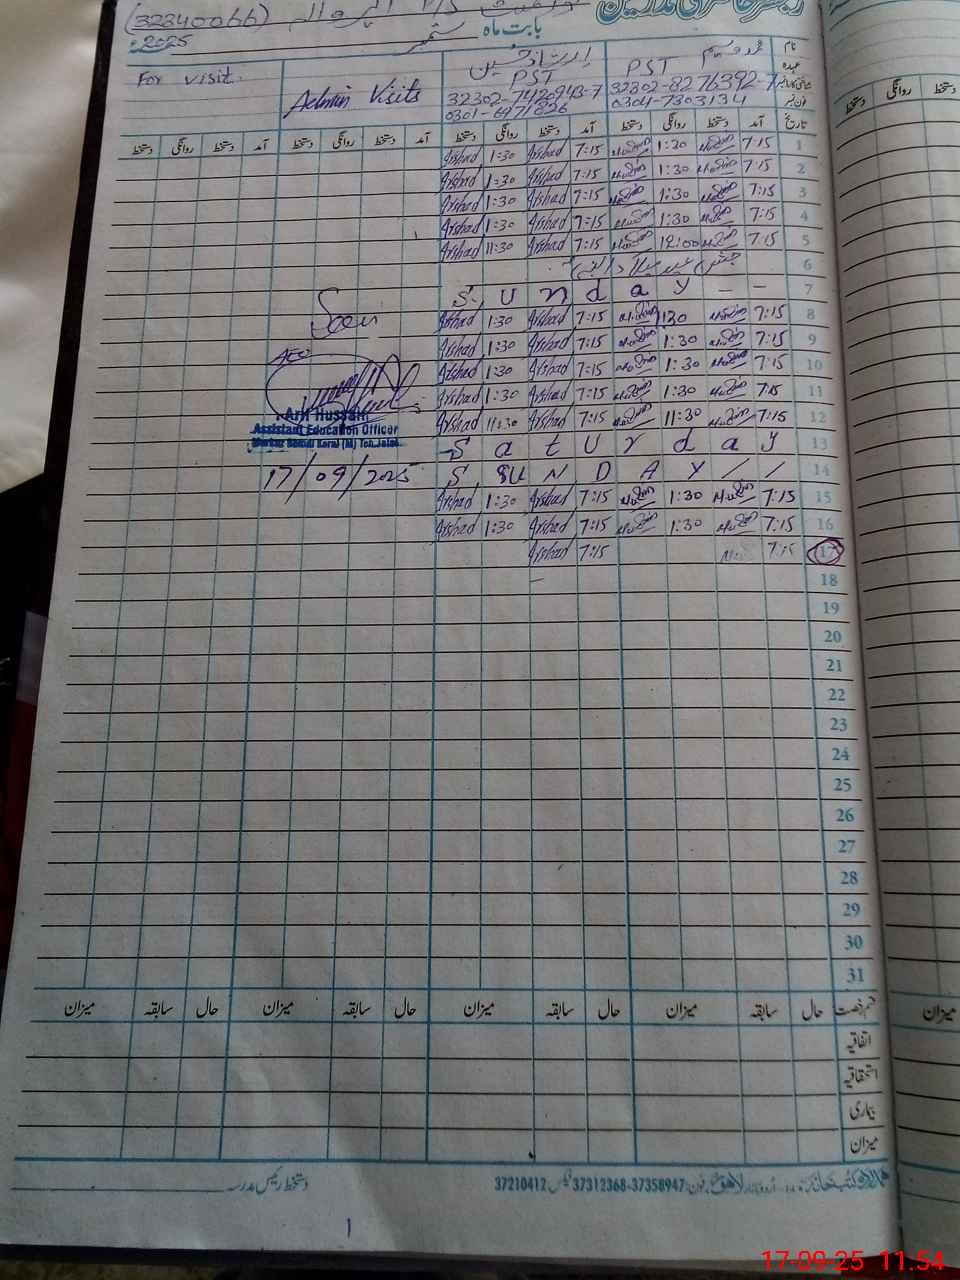 رجسٹر حاضری مدرسین
(32340066)
بابت ماہ ستمبر 2025ء
نام محمد وسیم ارشاد حسین
عہدہ PST PST Admin Visits For visit.
32302-8276392-7 32302-7420943-7
0304-7303134 0301-6971826
تاریخ آمد دستخط روانگی دستخط آمد دستخط روانگی دستخط آمد دستخط روانگی دستخط آمد دستخط روانگی دستخط
1 7:15 1:30 7:15 Arshad 1:30 Arshad
2 7:15 1:30 7:15 Arshad 1:30 Arshad
3 7:15 1:30 7:15 Arshad 1:30 Arshad
4 7:15 1:30 7:15 Arshad 1:30 Arshad
5 7:15 12:00 7:15 Arshad 11:30 Arshad
6 جشن عید میلاد النبی
7 S u n d a y - -
8 7:15 1:30 7:15 Arshad 1:30 Arshad
9 7:15 1:30 7:15 Arshad 1:30 Arshad
10 7:15 1:30 7:15 Arshad 1:30 Arshad
11 7:15 1:30 7:15 Arshad 1:30 Arshad
12 7:15 11:30 7:15 Arshad 11:30 Arshad
13 S a t U r d a y
14 S U N D A Y / /
15 7:15 1:30 7:15 Arshad 1:30 Arshad
16 7:15 1:30 7:15 Arshad 1:30 Arshad
17 7:15 7:15 Arshad
Seen
AEO
Arif Hussain
Assistant Education Officer
17/09/2025
18
19
20
21
22
23
24
25
26
27
28
29
30
31
قسم رخصت حال سابقہ میزان حال سابقہ میزان حال سابقہ میزان حال سابقہ میزان
اتفاقیہ
استحقاقیہ
بیماری
میزان
ہمالہ کتب خانہ اردو بازار لاہور فون: 37358947-37312368 فیکس 37210412
دستخط رئیس مدرسہ
1
دستخط روانگی دستخط
میزان
17-09-25 11:54